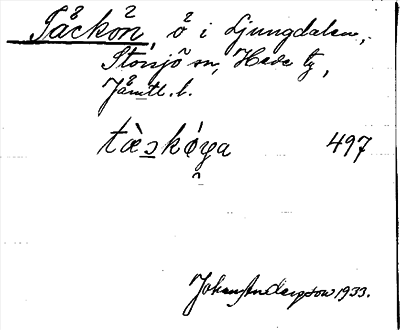 Tåckön, ö i Ljungdalen,
Storsjö sn, Hede tg,
Jämtl. l.
tæ̀ɔkǿya 497
Johan Anderson 1933.